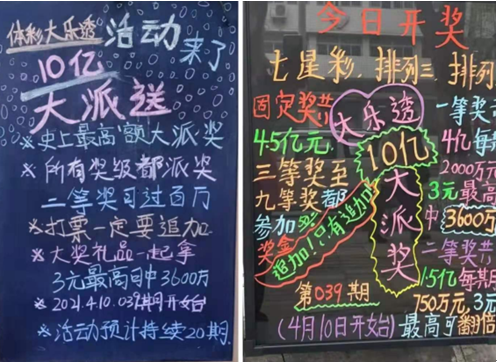 体彩大乐透活动
来了
10亿
大派送
※史上最高额大派奖
※所有奖级都派奖
二等奖可过百万
※打票一定要追加
※大奖礼品一起拿
3元最高可中3600万
※2021.4.10.039期开始
※活动预计持续20期
今日开奖
七星彩、排列三、排列
固定奖共
4.5亿元
三等奖至
九等奖都
参加
奖金
大乐透
10亿
大派奖
追加!只有追加
一等奖
4亿每
2000万
3元最高
中3600万
二等奖共
1.5亿每期
750万元,3元
第039期
(4月10日开始)
最高可翻倍